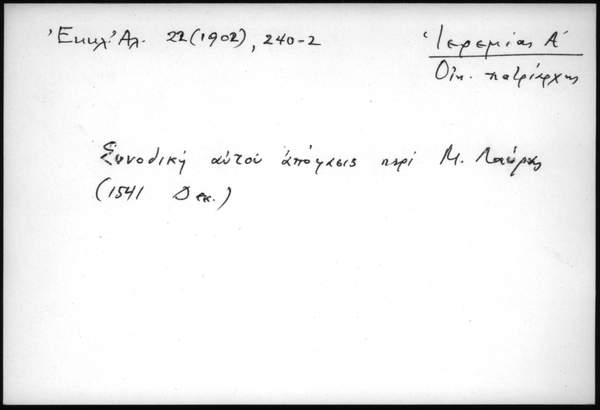 Ἐκκλ. Ἀλ. 22 (1902), 240-2
Ἱερεμίας Α΄
Οἰκ. πατριάρχης
Συνοδική αὐτοῦ ἀπόφασις περί Μ. Λαύρας
(1541 Δεκ.)